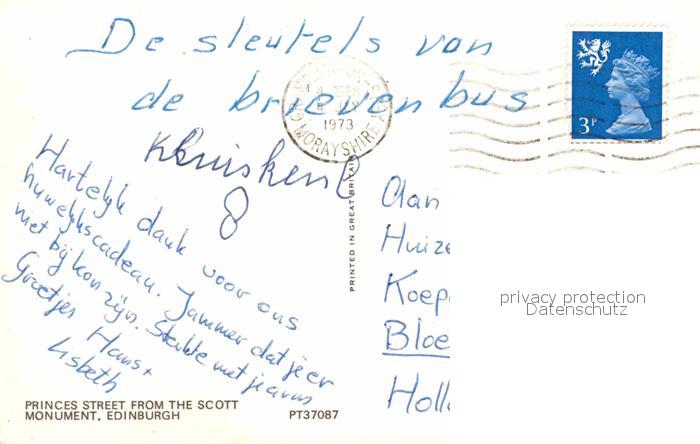 De sleutels van
de brievenbus
Kruisken
8
Hartelijk dank voor ons
huwelijkscadeau. Jammer dat je er
niet bij kon zijn. Sterkte met je arm
Groetjes Hans +
Lisbeth
1973
MORAYSHIRE
3P
PRINTED IN GREAT BRITAIN
Aan
Huize
Koep
Bloe
Holl
privacy protection
Datenschutz
PRINCES STREET FROM THE SCOTT
MONUMENT, EDINBURGH
PT37087